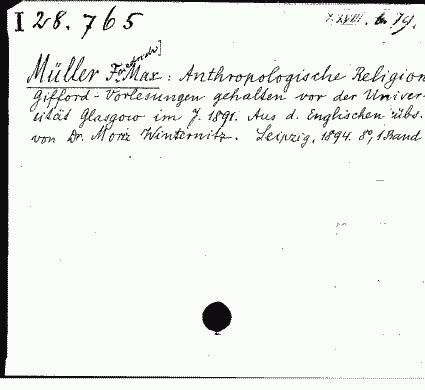 I 28.765
Müller Fr[iedrich] Max: Anthropologische Religion
Gifford-Vorlesungen gehalten vor der Univer-
sität Glasgow im J. 1891. Aus d. Englischen übs.
von Dr. Moriz Winternitz. Leipzig, 1894. 8°, 1 Band